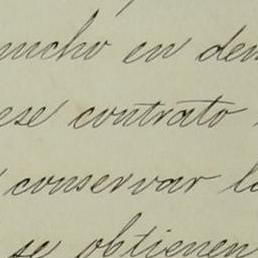 mucho en
ese contrato
conservar
se obtienen